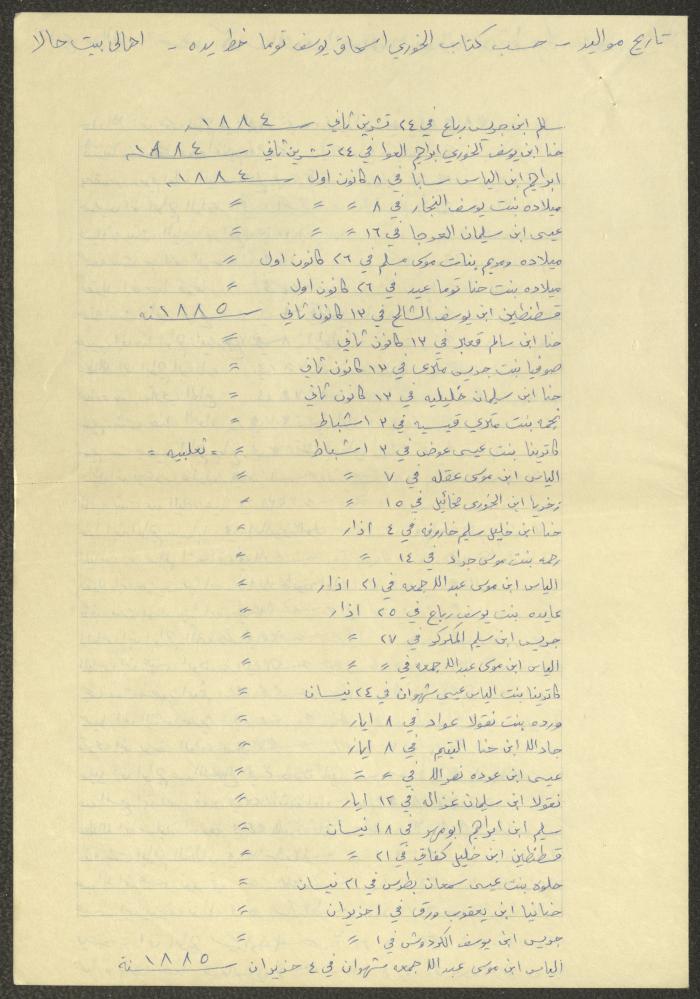 تاريخ مواليد - حسب كتاب الخوري اسحاق يوسف توما خط يده - اهالي بيت جالا
سليم ابن جريس رباع في ٢٤ تشرين ثاني سنة ١٨٨٤
حنا ابن يوسف الخوري ابراهيم العوا في ٢٤ تشرين ثاني سنة ١٨٨٤
ابراهيم ابن الياس سابا في ٨ كانون اول سنة ١٨٨٤
ميلاده بنت يوسف النجار في ٨ = = =
عيسى ابن سليمان العرجا في ١٦ = = =
ميلاده ومريم بنات موسى مسلم في ٢٦ كانون اول =
ميلاده بنت حنا توما عيد في ٢٦ كانون اول =
قسطنطين ابن يوسف الشالح في ١٣ كانون ثاني ١٨٨٥ سنه
حنا ابن سالم قمبر في ١٣ كانون ثاني =
صوفيا بنت جريس متري في ١٣ كانون ثاني =
حنا ابن سليمان خليليه في ١٣ كانون ثاني =
نجمه بنت متري قيسيه في ٣ اشباط =
كاترينا بنت عيسى عوض في ٣ اشباط = = تعلبيه =
الياس ابن موسى عقله في ٧ = =
زخريا ابن الخوري مخائيل في ١٥ = =
حنا ابن خليل سليم خاروفه في ٤ اذار =
رحمه بنت موسى جواد في ١٤ = =
الياس ابن موسى عبدالله جمعه في ٢١ اذار =
عايده بنت يوسف رباع في ٢٥ اذار =
جريس ابن سليم المكركر في ٢٧ = =
الياس ابن موسى عبدالله جمعه في = = =
كاترينا بنت الياس عيسى شهوان في ٢٤ نيسان =
ورده بنت نقولا عواد في ٨ ايار =
جادالله ابن حنا اليتيم في ٨ ايار =
عيسى ابن عوده نصرالله في = = =
نقولا ابن سليمان غزاله في ١٢ ايار =
سليم ابن ابراهيم ابومهر في ١٨ نيسان =
قسطنطين ابن خليل كفاتي في ٢١ = =
حلوه بنت عيسى سمعان بطرس في ٢١ نيسان =
حنانيا ابن يعقوب ورق في ١ حزيران =
جريس ابن يوسف الكردوش في ١ = =
الياس ابن موسى عبدالله جمعه شهوان في ٤ حزيران ١٨٨٥ سنة